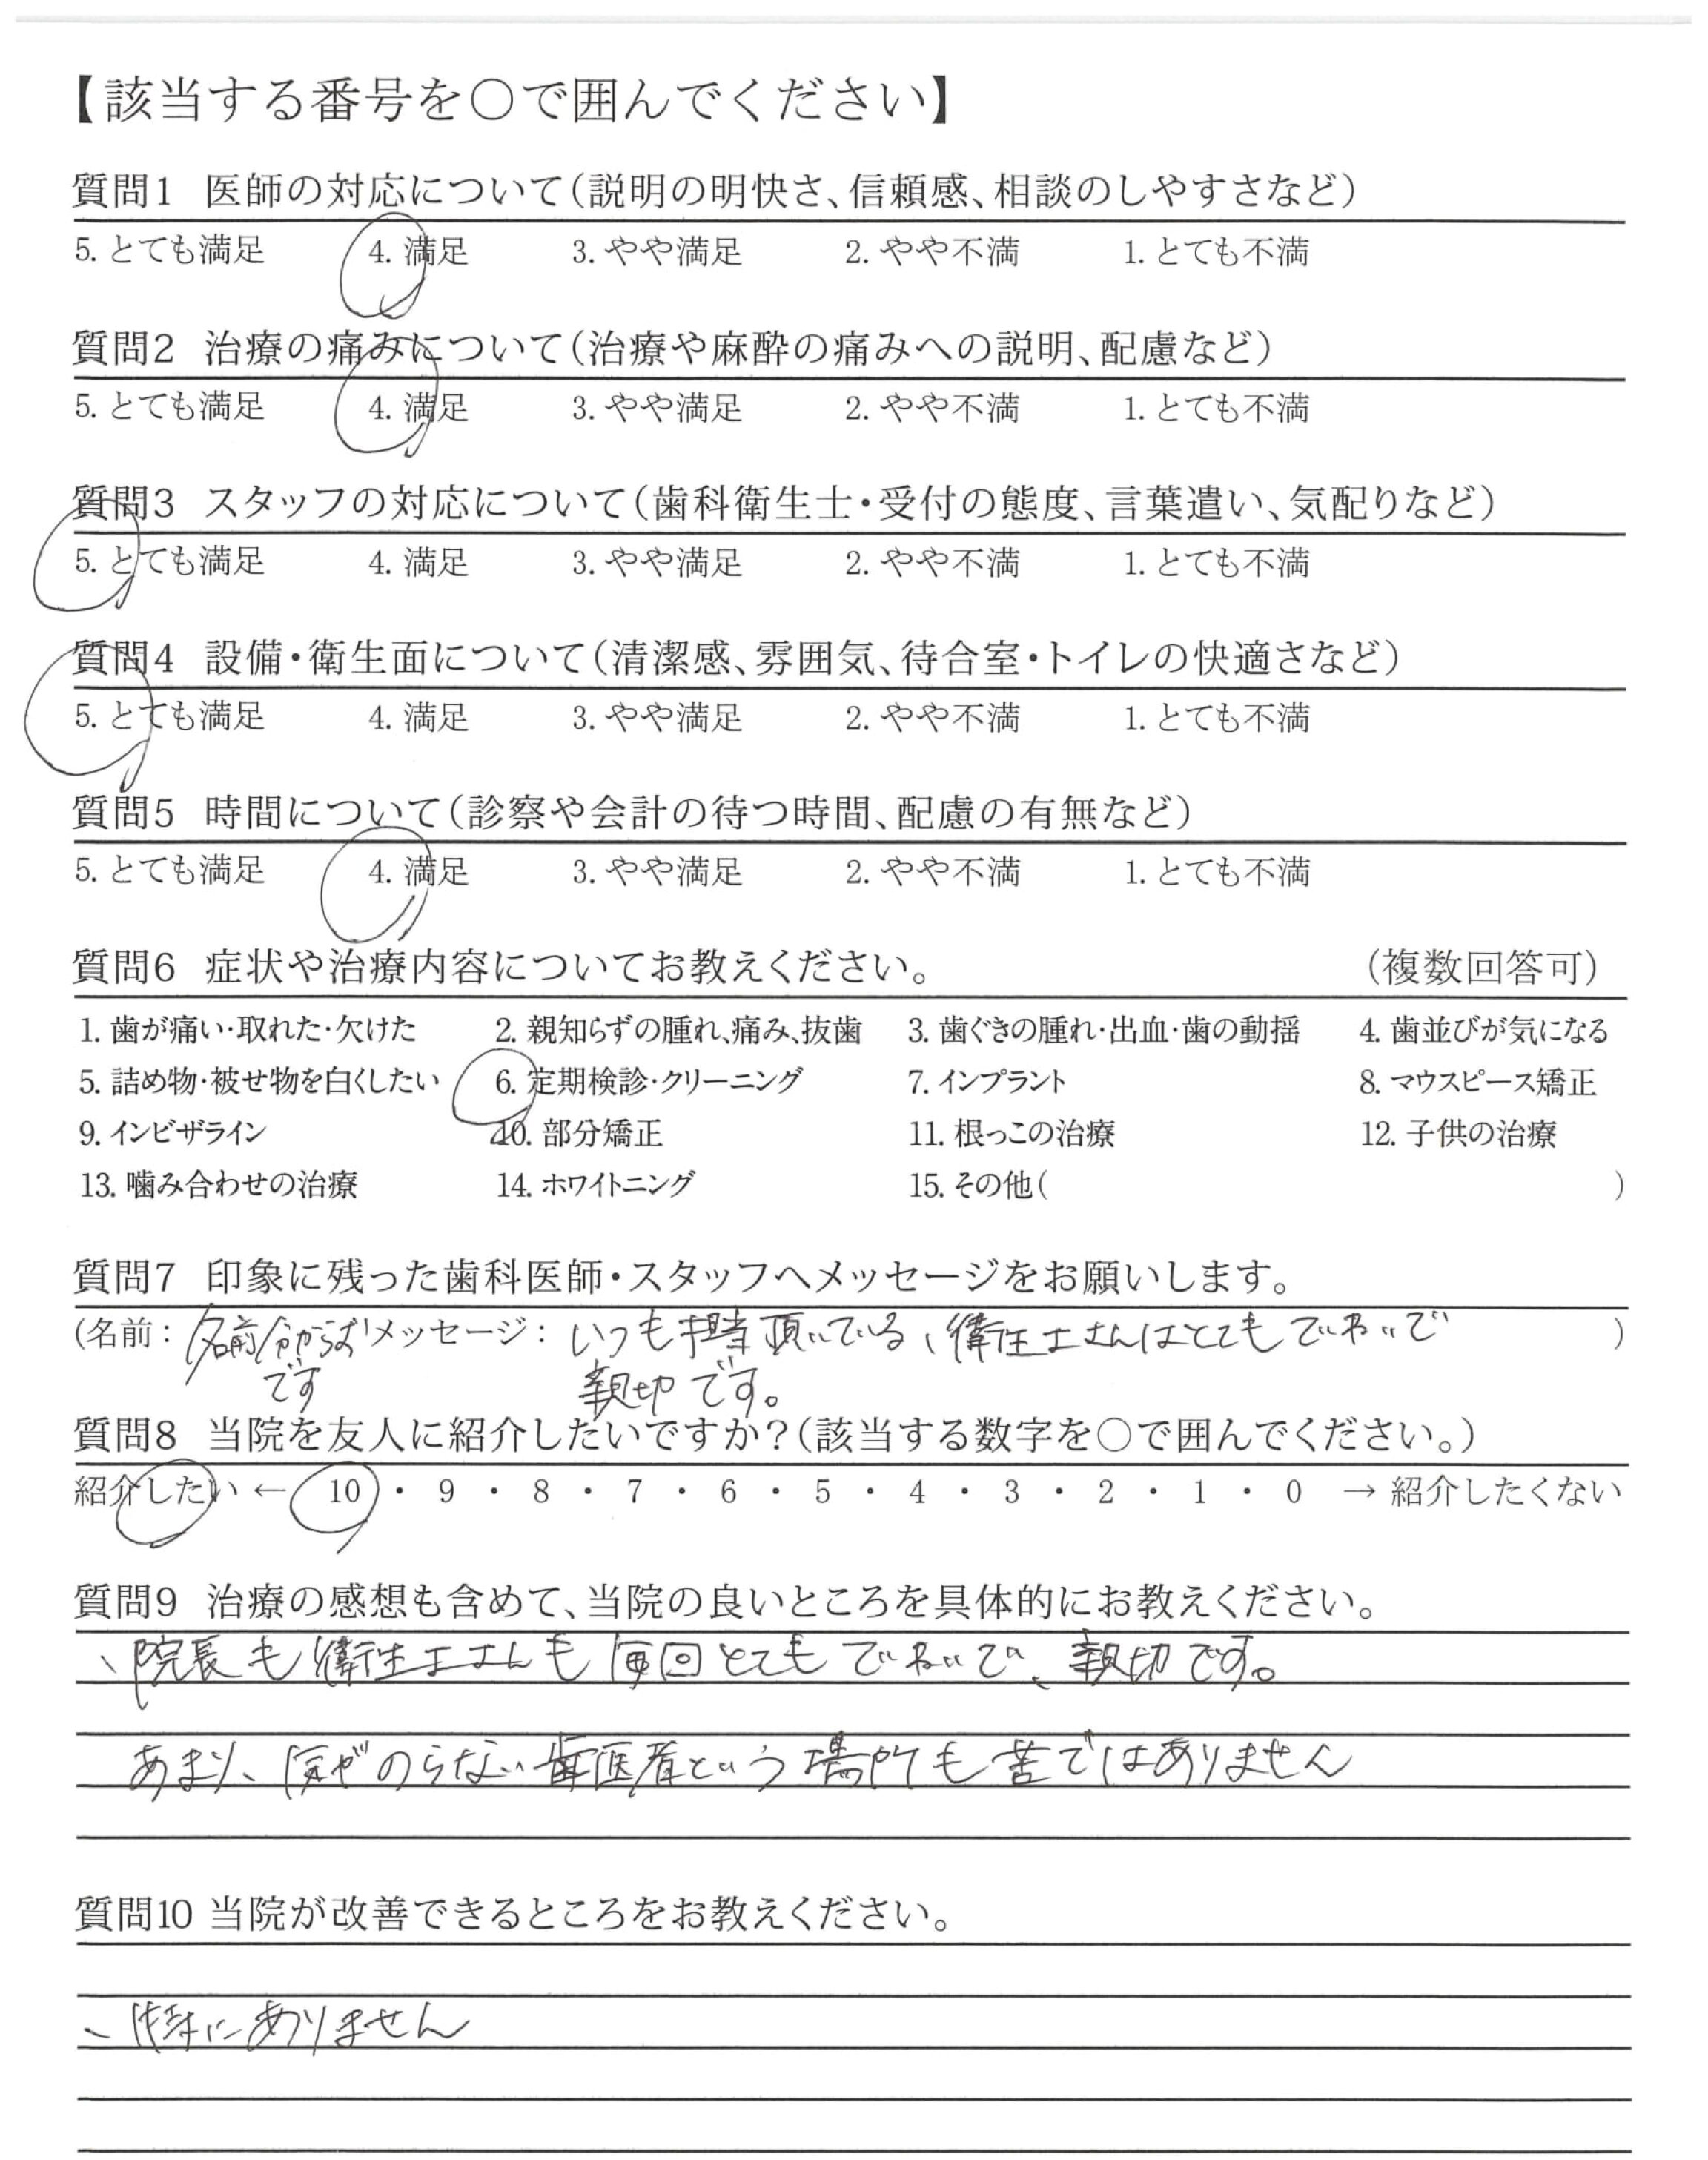 【該当する番号を○で囲んでください】
質問1 医師の対応について(説明の明快さ、信頼感、相談のしやすさなど)
5. とても満足 4. 満足 3. やや満足 2. やや不満 1. とても不満
質問2 治療の痛みについて(治療や麻酔の痛みへの説明、配慮など)
5. とても満足 4. 満足 3. やや満足 2. やや不満 1. とても不満
質問3 スタッフの対応について(歯科衛生士・受付の態度、言葉遣い、気配りなど)
5. とても満足 4. 満足 3. やや満足 2. やや不満 1. とても不満
質問4 設備・衛生面について(清潔感、雰囲気、待合室・トイレの快適さなど)
5. とても満足 4. 満足 3. やや満足 2. やや不満 1. とても不満
質問5 時間について(診察や会計の待つ時間、配慮の有無など)
5. とても満足 4. 満足 3. やや満足 2. やや不満 1. とても不満
質問6 症状や治療内容についてお教えください。 (複数回答可)
1. 歯が痛い・取れた・欠けた 2. 親知らずの腫れ、痛み、抜歯 3. 歯ぐきの腫れ・出血・歯の動揺 4. 歯並びが気になる
5. 詰め物・被せ物を白くしたい 6. 定期検診・クリーニング 7. インプラント 8. マウスピース矯正
9. インビザライン 10. 部分矯正 11. 根っこの治療 12. 子供の治療
13. 噛み合わせの治療 14. ホワイトニング 15. その他( )
質問7 印象に残った歯科医師・スタッフへメッセージをお願いします。
(名前: 名前分からず メッセージ: いつも担当頂いている、衛生士さんはとてもていねいで )
です 親切です。
質問8 当院を友人に紹介したいですか?(該当する数字を○で囲んでください。)
紹介したい ← 10 ・ 9 ・ 8 ・ 7 ・ 6 ・ 5 ・ 4 ・ 3 ・ 2 ・ 1 ・ 0 → 紹介したくない
質問9 治療の感想も含めて、当院の良いところを具体的にお教えください。
、院長も衛生士さんも毎回とてもていねいで、親切です。
あまり、気がのらない歯医者という場所も苦ではありません
質問10 当院が改善できるところをお教えください。
、特にありません